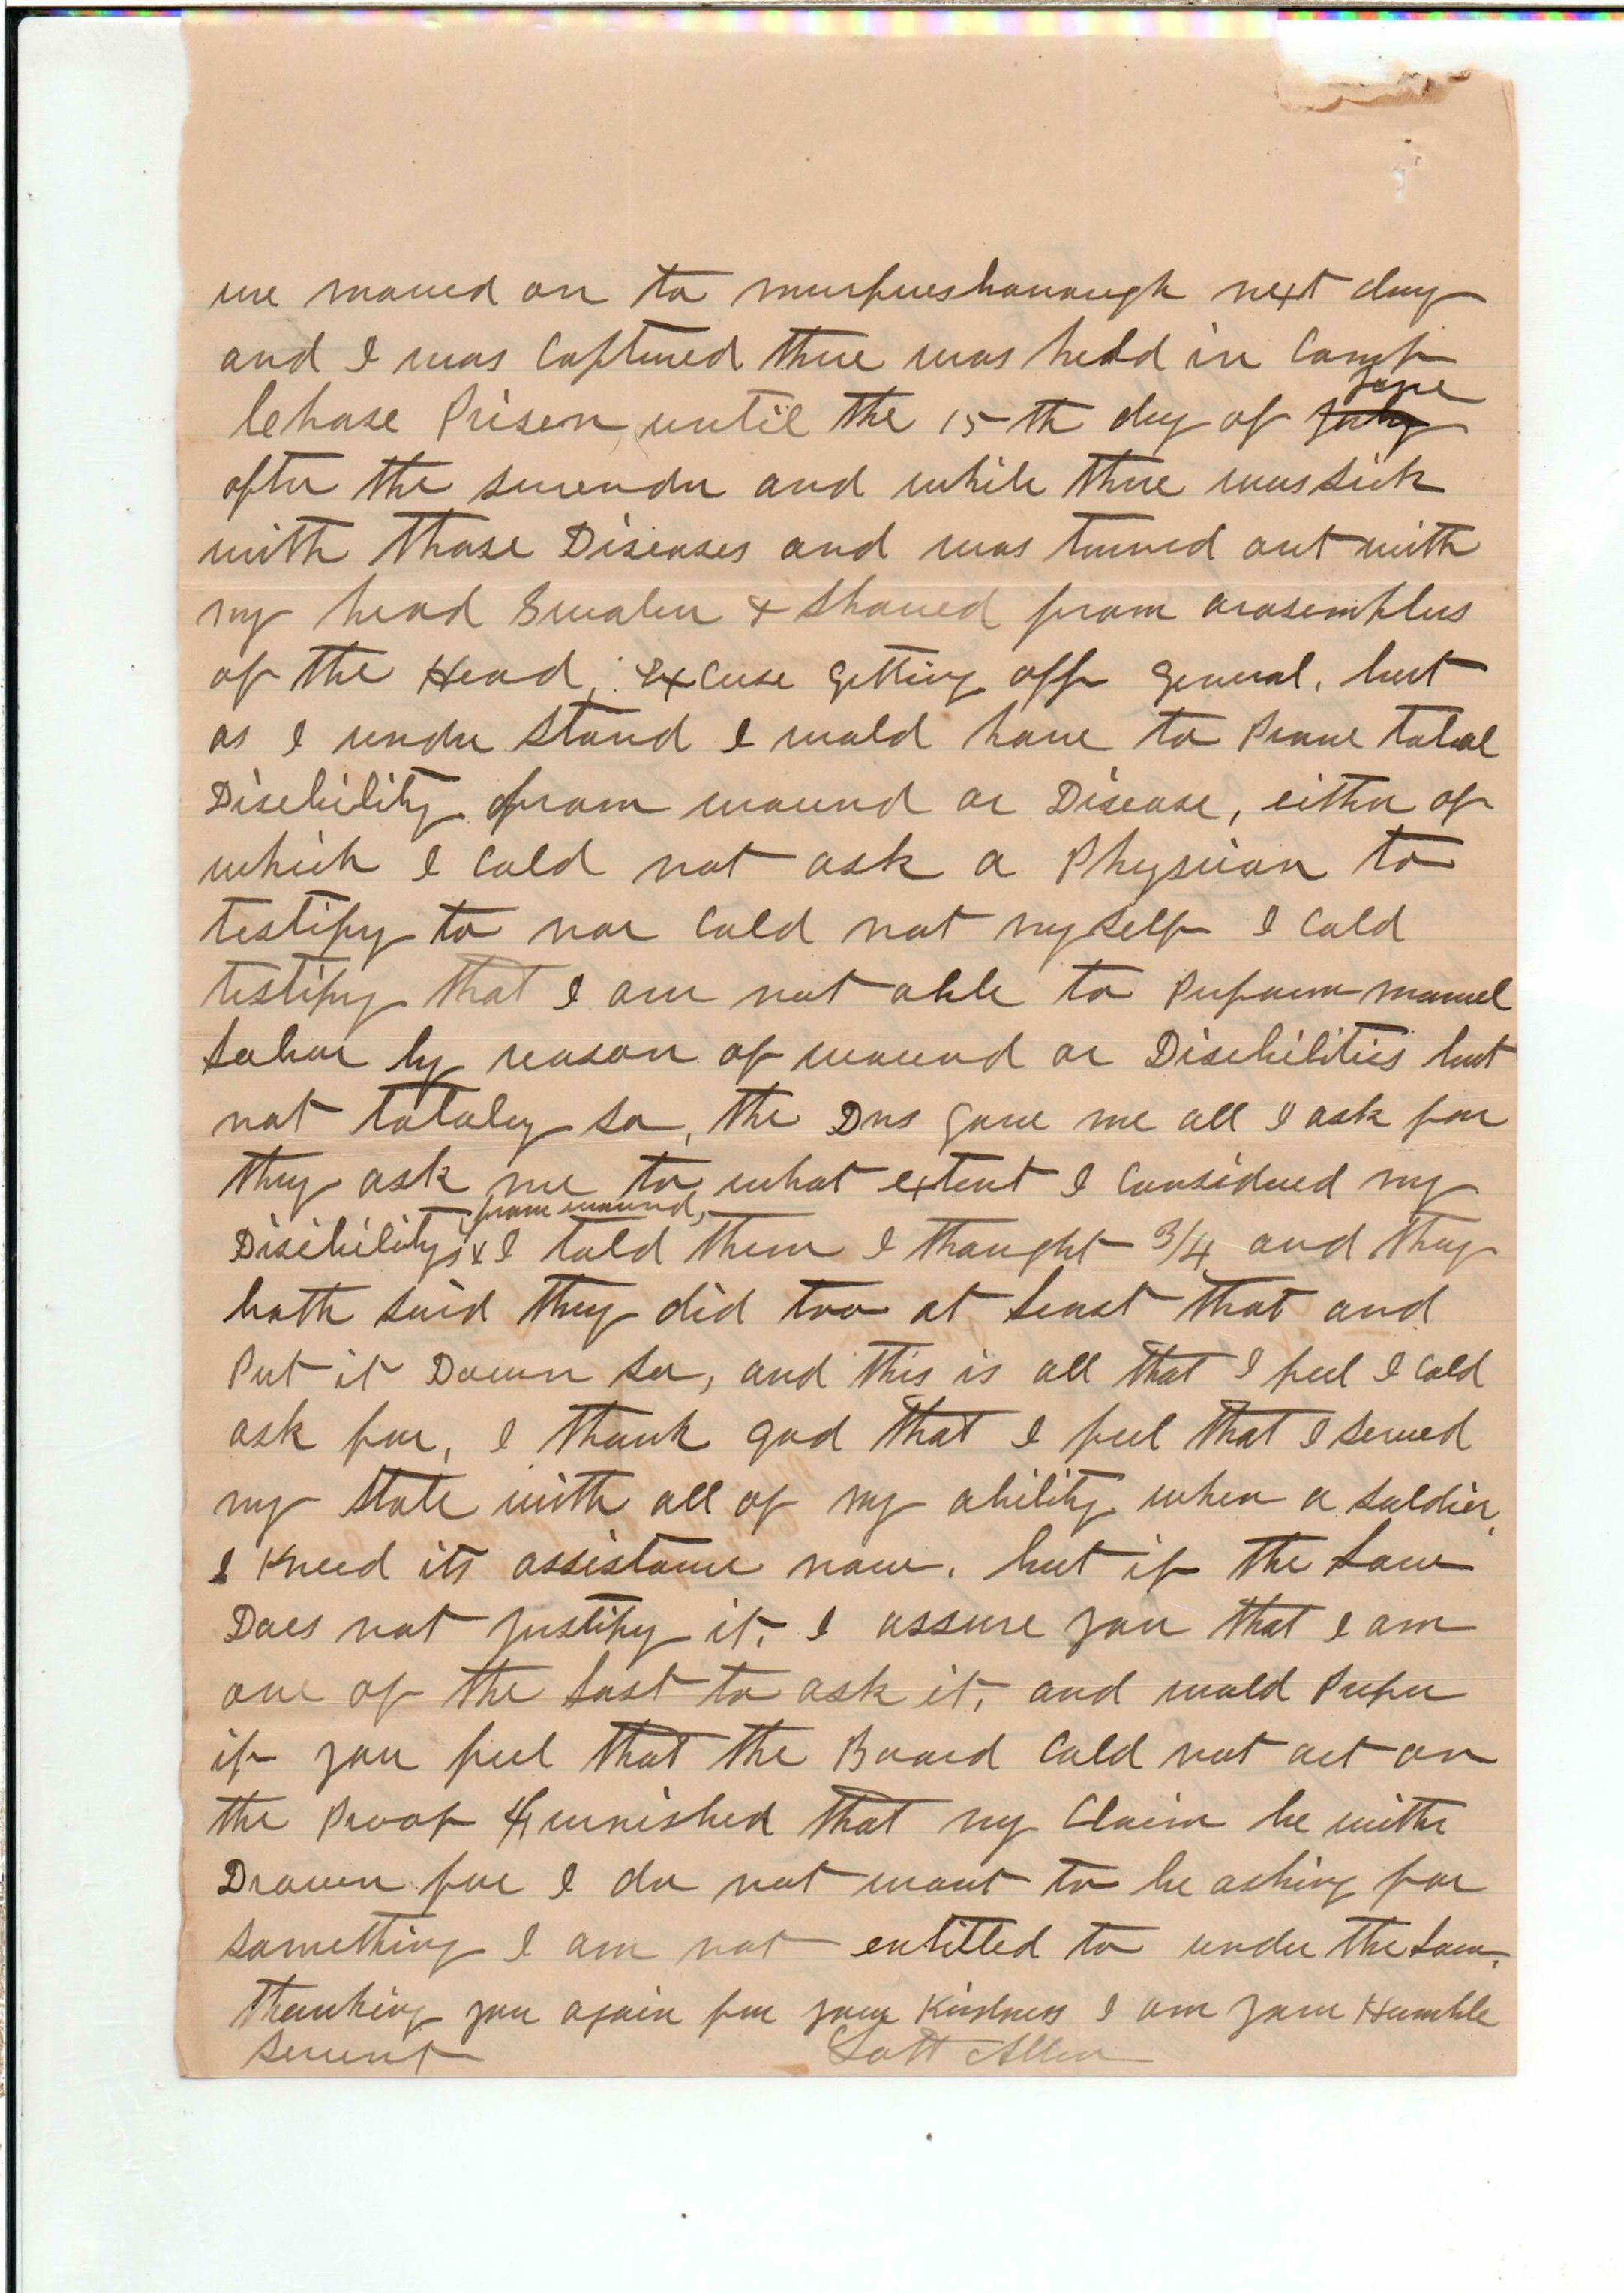 we moved on to murfueshorough next day
and I was Captured there was held in Camp
Chase Prison until the 15th day of july June
after the surender and while there was sick
with those Diseases and was turned out with
my head Swolen & Shaved from arasemplus
of the Head, Excuse getting off General, but
as I under Stand I wold have to Prove total
Disebility from wound or Disease, either of
which I Cold not ask a Physician to
testify to nor Cold not my self I Cold
testify that I am not able to Perform manuel
Labor by reason of wound or Disebilities but
not totaly so, the Drs gave me all I ask for
they ask me to what extent I Considered my
Disibilitys from wound, & I told them I thought 3/4 and they
both said they did too at least that and
Put it Down so, and this is all that I feel I Cold
ask for, I thank god that I feel that I served
my State with all of my ability when a soldier,
I Kneed its assistance now. but if the Law
Does not justify it, I assure you that I am
one of the last to ask it, and wold Prefer
if you feel that the Board Cold not act on
the Proof furnished that my Claim be with
Drawn for I do not want to be asking for
something I am not entitled to under the Law,
Thanking you again for your Kindness I am your Humble
servent Lott Allen